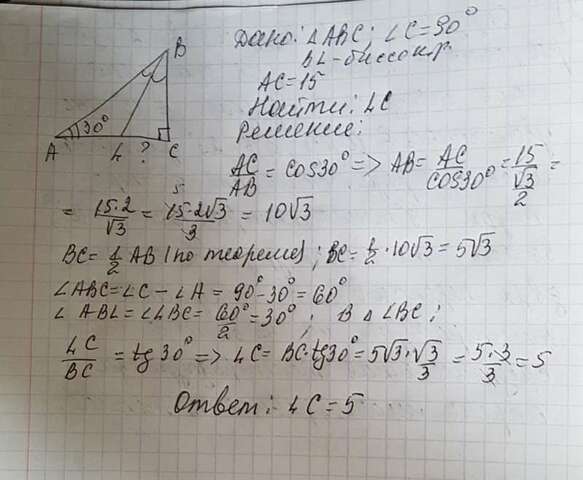 Дано: △ABC; ∠C=90°
BL-биссектр.
AC=15
Найти: LC
Решение:
B
30°
A L ? C
AC/AB = cos30° => AB = AC/cos30° = 15/(√3/2) =
= 15·2/√3 = 15·2√3/3 = 10√3
5
BC = 1/2 AB (по теореме); BC = 1/2 · 10√3 = 5√3
∠ABC=∠C-∠A = 90°-30°=60°
∠ABL=∠LBC= 60°/2 = 30°; В △ LBC;
LC/BC = tg 30° => LC= BC·tg30°= 5√3·√3/3 = 5·3/3 = 5
Ответ: LC=5